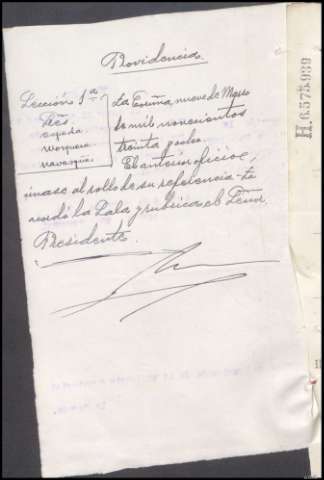 Providencia
Sección 1ª
Sres
Cepeda
Marquina
Navarquias
La Coruña, nueve de Marzo
de mil novecientos
treinta y ocho.
El anterior oficio,
únase al rollo de su referencia. Lo
acordó la Sala y rubrica el Señor
Presidente.
H.6575,939